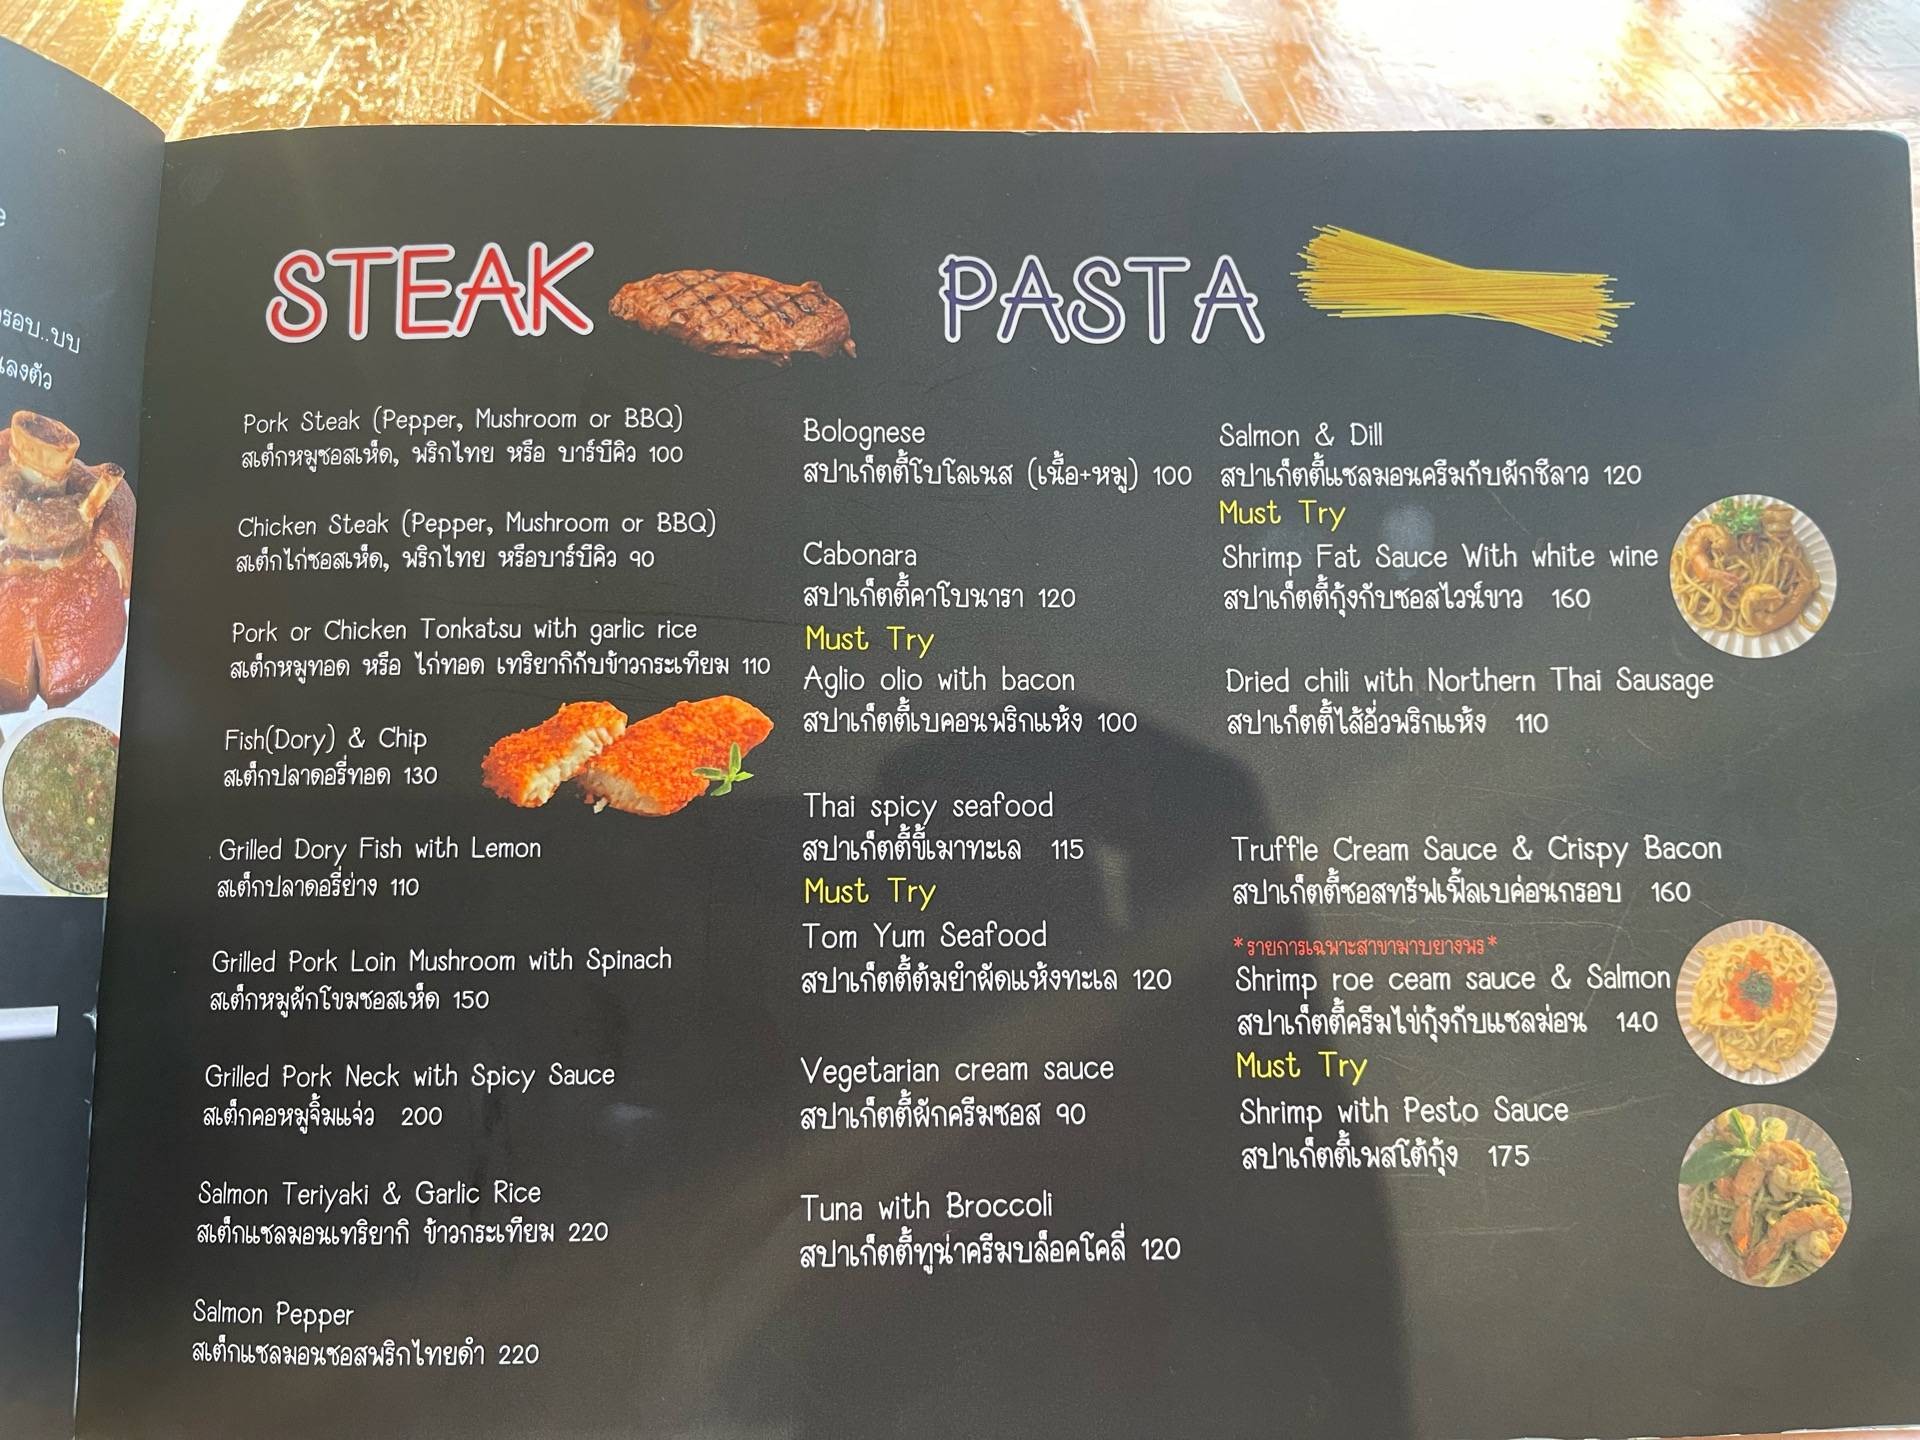 รอบ..บบ
ลงตัว
STEAK
Pork Steak (Pepper, Mushroom or BBQ)
สเต็กหมูซอสเห็ด, พริกไทย หรือ บาร์บีคิว 100
Chicken Steak (Pepper, Mushroom or BBQ)
สเต็กไก่ซอสเห็ด, พริกไทย หรือบาร์บีคิว 90
Pork or Chicken Tonkatsu with garlic rice
สเต็กหมูทอด หรือ ไก่ทอด เทริยากิกับข้าวกระเทียม 110
Fish(Dory) & Chip
สเต็กปลาดอรี่ทอด 130
Grilled Dory Fish with Lemon
สเต็กปลาดอรี่ย่าง 110
Grilled Pork Loin Mushroom with Spinach
สเต็กหมูผักโขมซอสเห็ด 150
Grilled Pork Neck with Spicy Sauce
สเต็กคอหมูจิ้มแจ่ว 200
Salmon Teriyaki & Garlic Rice
สเต็กแซลมอนเทริยากิ ข้าวกระเทียม 220
Salmon Pepper
สเต็กแซลมอนซอสพริกไทยดำ 220
PASTA
Bolognese
สปาเก็ตตี้โบโลเนส (เนื้อ+หมู) 100
Cabonara
สปาเก็ตตี้คาโบนารา 120
Must Try
Aglio olio with bacon
สปาเก็ตตี้เบคอนพริกแห้ง 100
Thai spicy seafood
สปาเก็ตตี้ขี้เมาทะเล 115
Must Try
Tom Yum Seafood
สปาเก็ตตี้ต้มยำผัดแห้งทะเล 120
Vegetarian cream sauce
สปาเก็ตตี้ผักครีมซอส 90
Tuna with Broccoli
สปาเก็ตตี้ทูน่าครีมบล็อคโคลี่ 120
Salmon & Dill
สปาเก็ตตี้แซลมอนครีมกับผักชีลาว 120
Must Try
Shrimp Fat Sauce With white wine
สปาเก็ตตี้กุ้งกับซอสไวน์ขาว 160
Dried chili with Northern Thai Sausage
สปาเก็ตตี้ไส้อั่วพริกแห้ง 110
Truffle Cream Sauce & Crispy Bacon
สปาเก็ตตี้ซอสทรัฟเฟิ้ลเบค่อนกรอบ 160
*รายการเฉพาะสาขามาบยางพร*
Shrimp roe ceam sauce & Salmon
สปาเก็ตตี้ครีมไข่กุ้งกับแซลม่อน 140
Must Try
Shrimp with Pesto Sauce
สปาเก็ตตี้เพสโต้กุ้ง 175